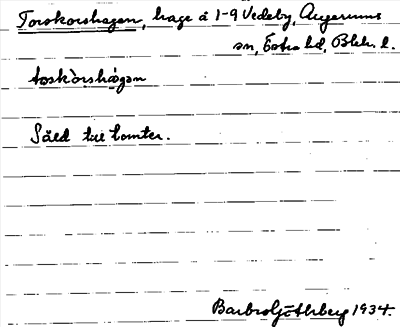 Torskorshagen, hage å 1-9 Vedeby, Augerums
sn, Östra hd, Blek. l.
toskòrshagən
Såld till tomter.
Barbro Göthberg 1934.